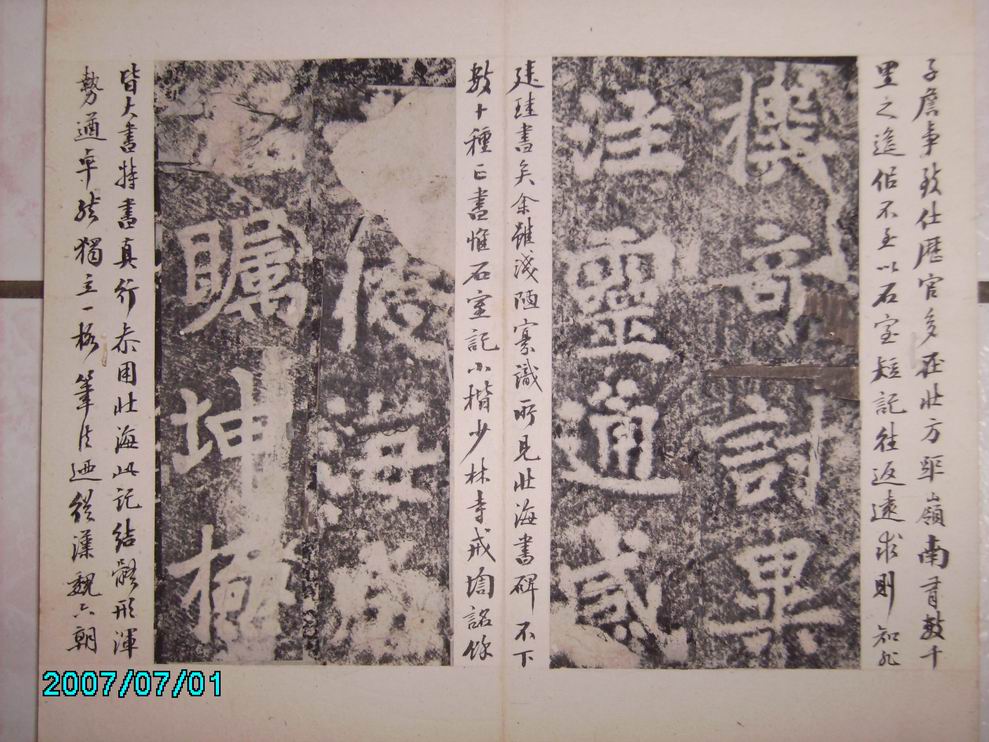 子詹事致仕歷官多在北方距嶺南有數千
里之遙似不至以石室短記往返遠求則知非
奇討
靈通感
廷珪書矣余雖淺陋寡識所見北海書碑不下
數十種正書惟石室記小楷少林寺戒壇銘餘
海
矚坤極
皆大書特書真行叅用北海此記結體形渾
勢遒卓然獨立一格筆法迺從漢魏六朝
2007/07/01